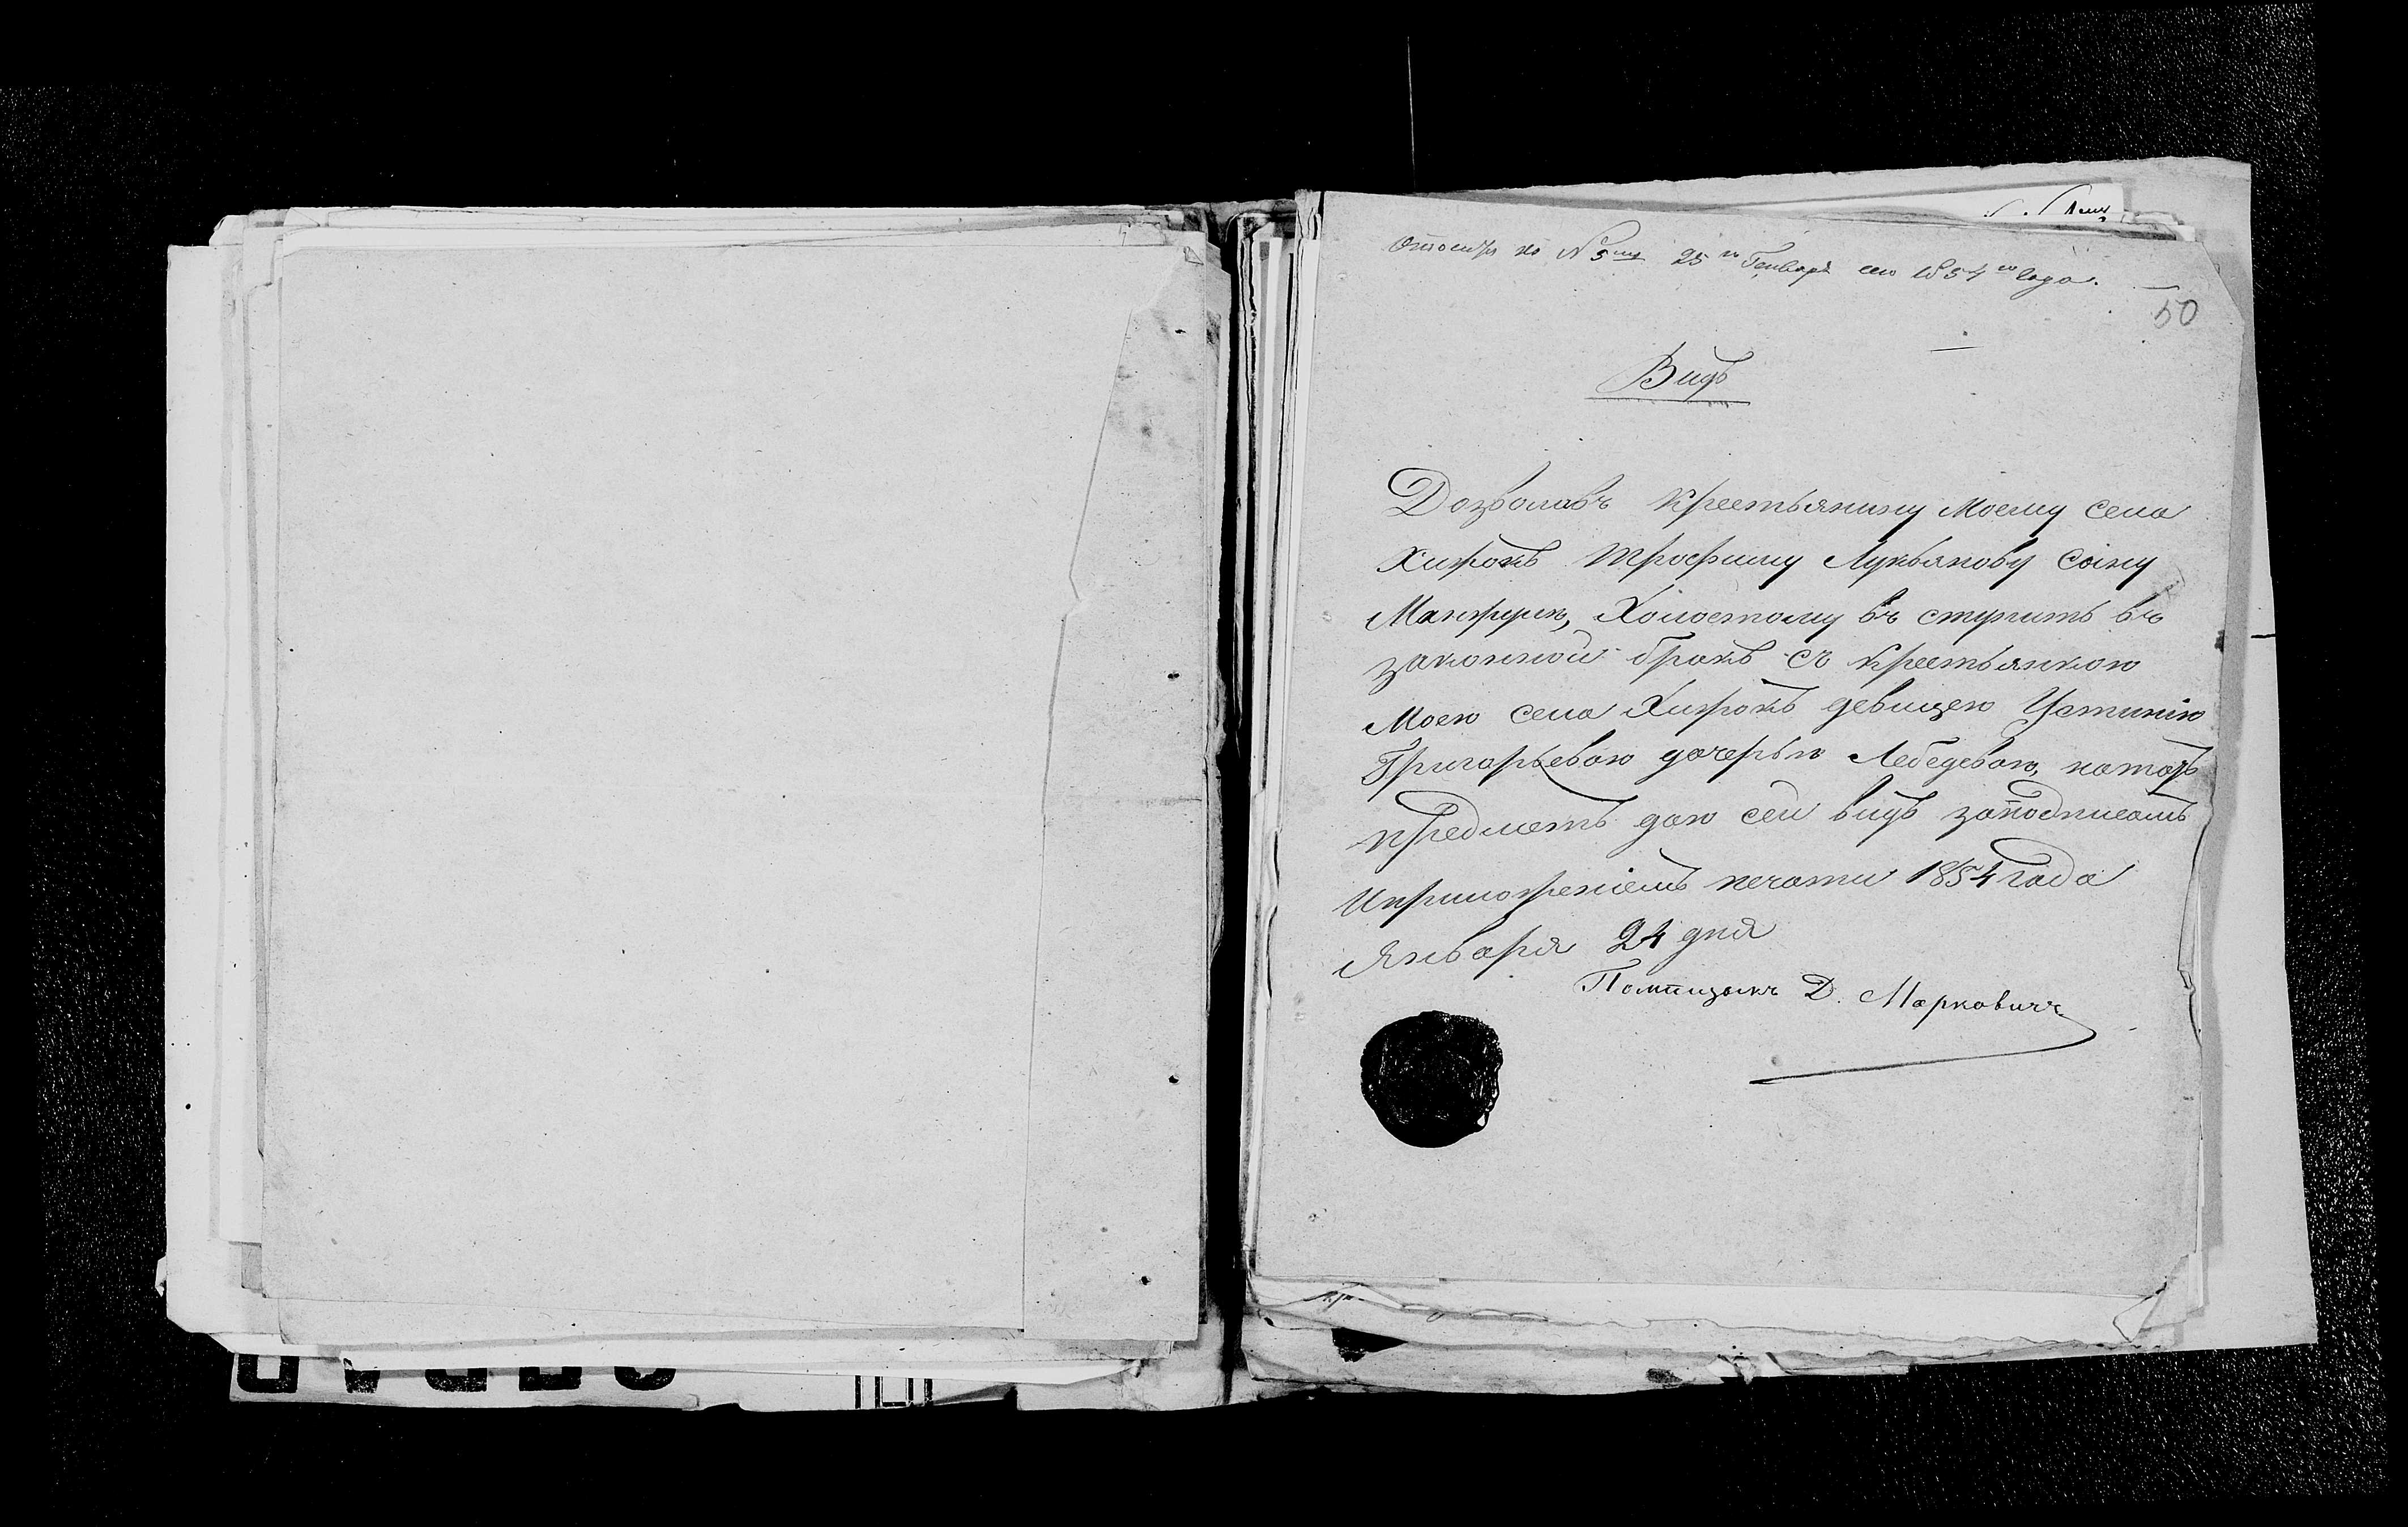 Относ. къ № 5му 25го Генваря сего 1854го года.
50
Видъ
Дозволавъ крестьянину моему села
Хижокъ Трофиму Лукьянову сыну
Манжури, Холостому въ ступить въ
законной бракъ съ крестьянкою
Моею села Хижокъ девицею Устинію
Григорьевою дочерью Лебедевою, на тотъ
предметъ даю сей видъ заподписомъ
Иприложеніемъ печати 1854 года
Января 24 дня
Помещикъ Д. Марковичъ